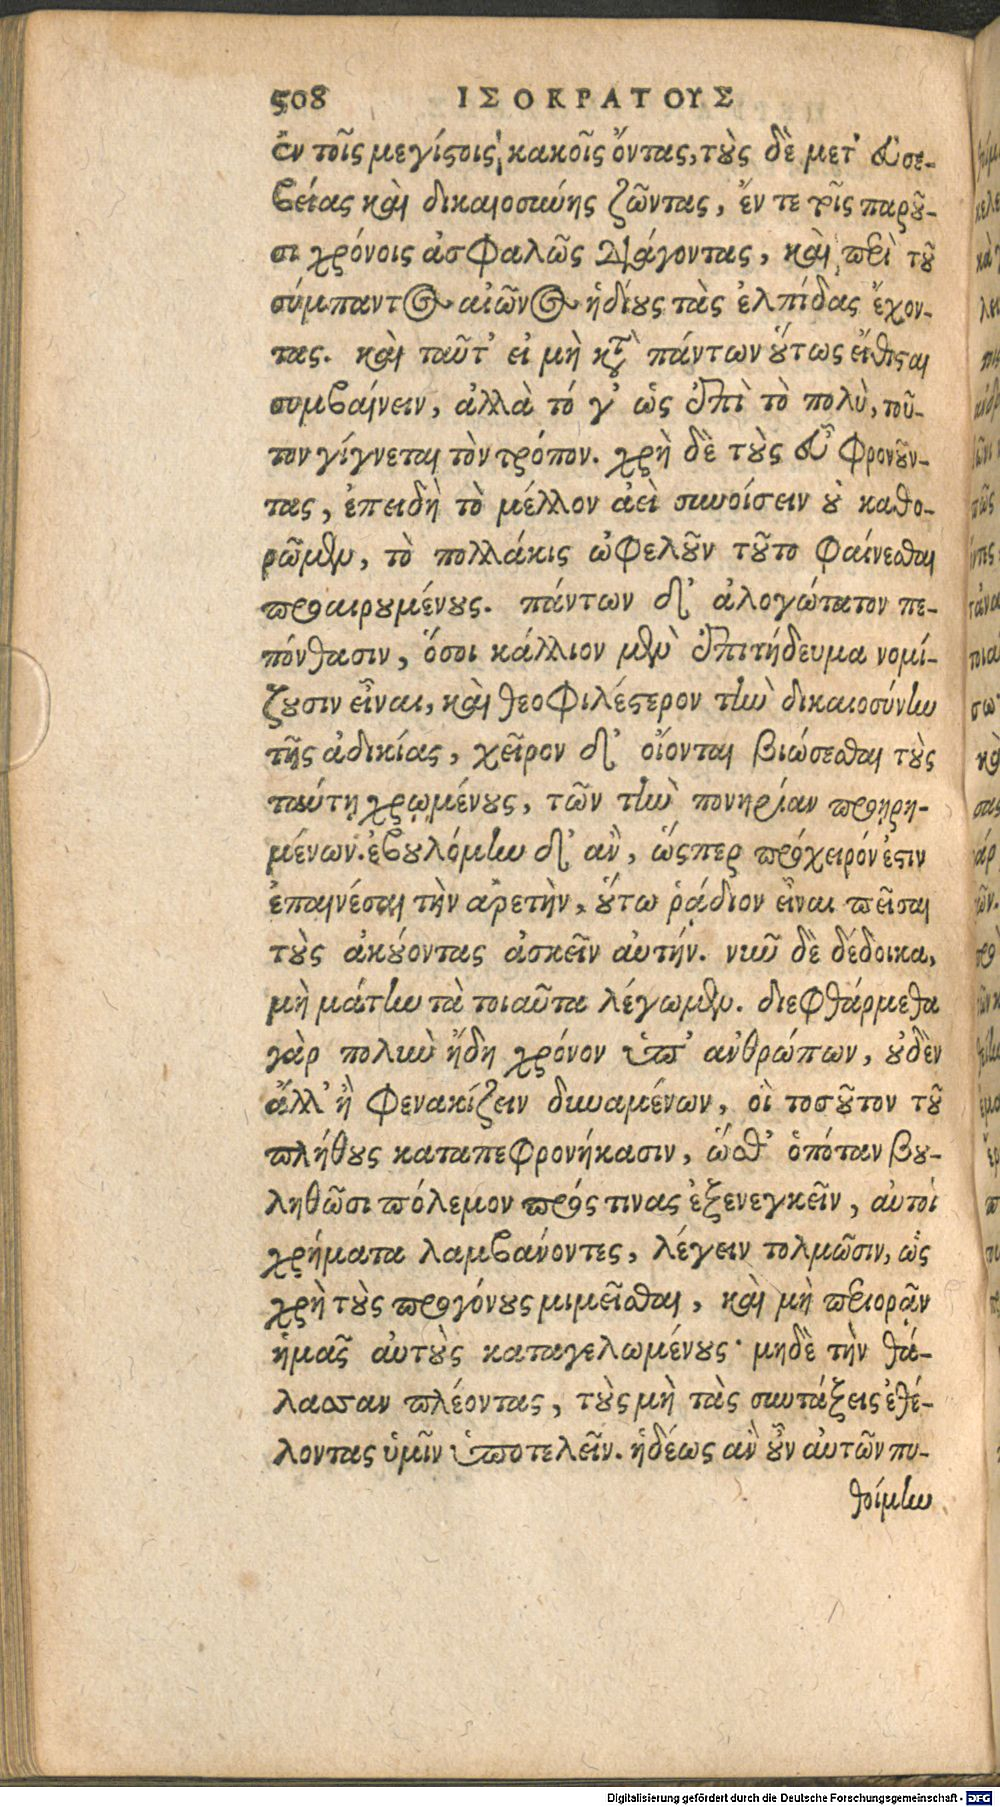 508 ΙΣΟΚΡΑΤΟΥΣ
ἐν τοῖς μεγίστοις κακοῖς ὄντας, τοὺς δὲ μετ' εὐσε-
βείας καὶ δικαιοσύνης ζῶντας, ἔν τε τοῖς παροῦ-
σι χρόνοις ἀσφαλῶς διάγοντας, καὶ περὶ τοῦ
σύμπαντος αἰῶνος ἡδίους τὰς ἐλπίδας ἔχον-
τας. καὶ ταῦτ' εἰ μὴ κατὰ πάντων οὕτως εἴθισται
συμβαίνειν, ἀλλὰ τό γ' ὡς ἐπὶ τὸ πολὺ, τοῦ-
τον γίγνεται τὸν τρόπον. χρὴ δὲ τοὺς εὖ φρονοῦν-
τας, ἐπειδὴ τὸ μέλλον ἀεὶ συνοίσειν οὐ καθο-
ρῶμεν, τὸ πολλάκις ὠφελοῦν τοῦτο φαίνεσθαι
προαιρουμένους. πάντων δ' ἀλογώτατον πε-
πόνθασιν, ὅσοι κάλλιον μὲν ἐπιτήδευμα νομί-
ζουσιν εἶναι, καὶ θεοφιλέστερον τὴν δικαιοσύνην
τῆς ἀδικίας, χεῖρον δ' οἴονται βιώσεσθαι τοὺς
ταύτῃ χρωμένους, τῶν τὴν πονηρίαν προῃρη-
μένων. ἐβουλόμην δ' ἂν, ὥσπερ πρόχειρόν ἐστιν
ἐπαινέσαι τὴν ἀρετὴν, οὕτω ῥάδιον εἶναι πεῖσαι
τοὺς ἀκούοντας ἀσκεῖν αὐτήν. νῦν δὲ δέδοικα,
μὴ μάτην τὰ τοιαῦτα λέγωμεν. διεφθάρμεθα
γὰρ πολὺν ἤδη χρόνον ὑπ' ἀνθρώπων, οὐδὲν
ἄλλ' ἢ φενακίζειν δυναμένων, οἳ τοσοῦτον τοῦ
πλήθους καταπεφρονήκασιν, ὥσθ' ὁπόταν βου-
ληθῶσι πόλεμον πρός τινας ἐξενεγκεῖν, αὐτοὶ
χρήματα λαμβάνοντες, λέγειν τολμῶσιν, ὡς
χρὴ τοὺς προγόνους μιμεῖσθαι, καὶ μὴ περιορᾷν
ἡμᾶς αὐτοὺς καταγελωμένους· μηδὲ τὴν θά-
λασσαν πλέοντας, τοὺς μὴ τὰς συντάξεις ἐθέ-
λοντας ὑμῖν ὑποτελεῖν. ἡδέως ἂν οὖν αὐτῶν πυ-
θοίμην
Digitalisierung gefördert durch die Deutsche Forschungsgemeinschaft - DFG